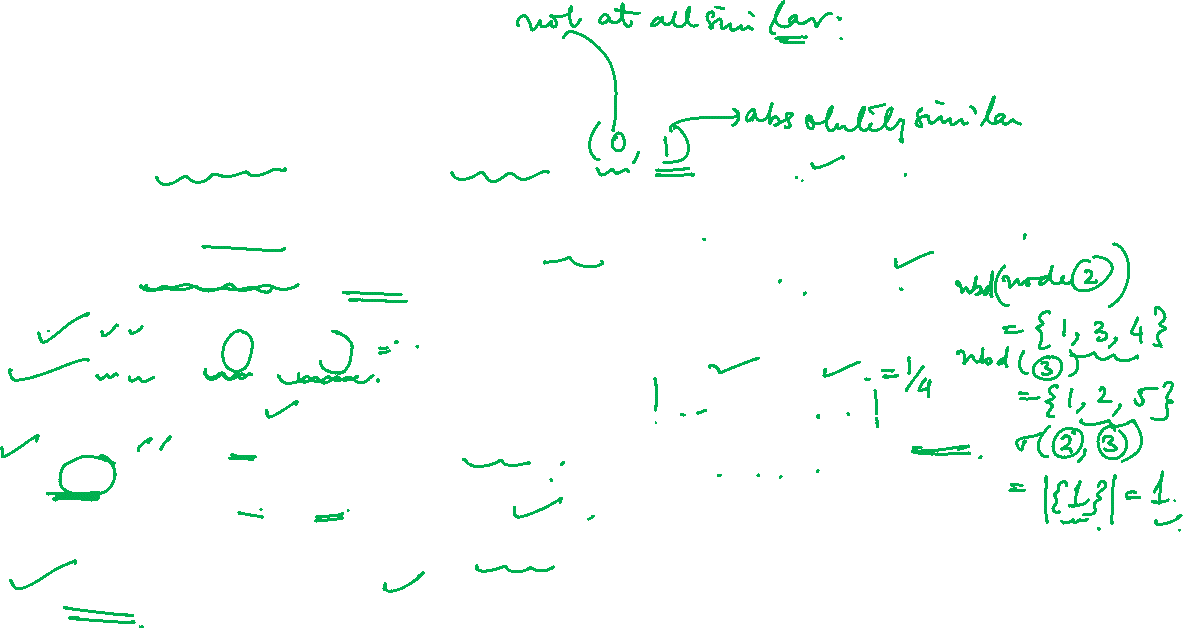 not at all similar.
(0, 1) → absolutely similar
nbd(node ②)
= {1, 3, 4}
nbd(③)
= 1/4
= {1, 2, 5}
σ(②, ③)
= |{1}| = 1.